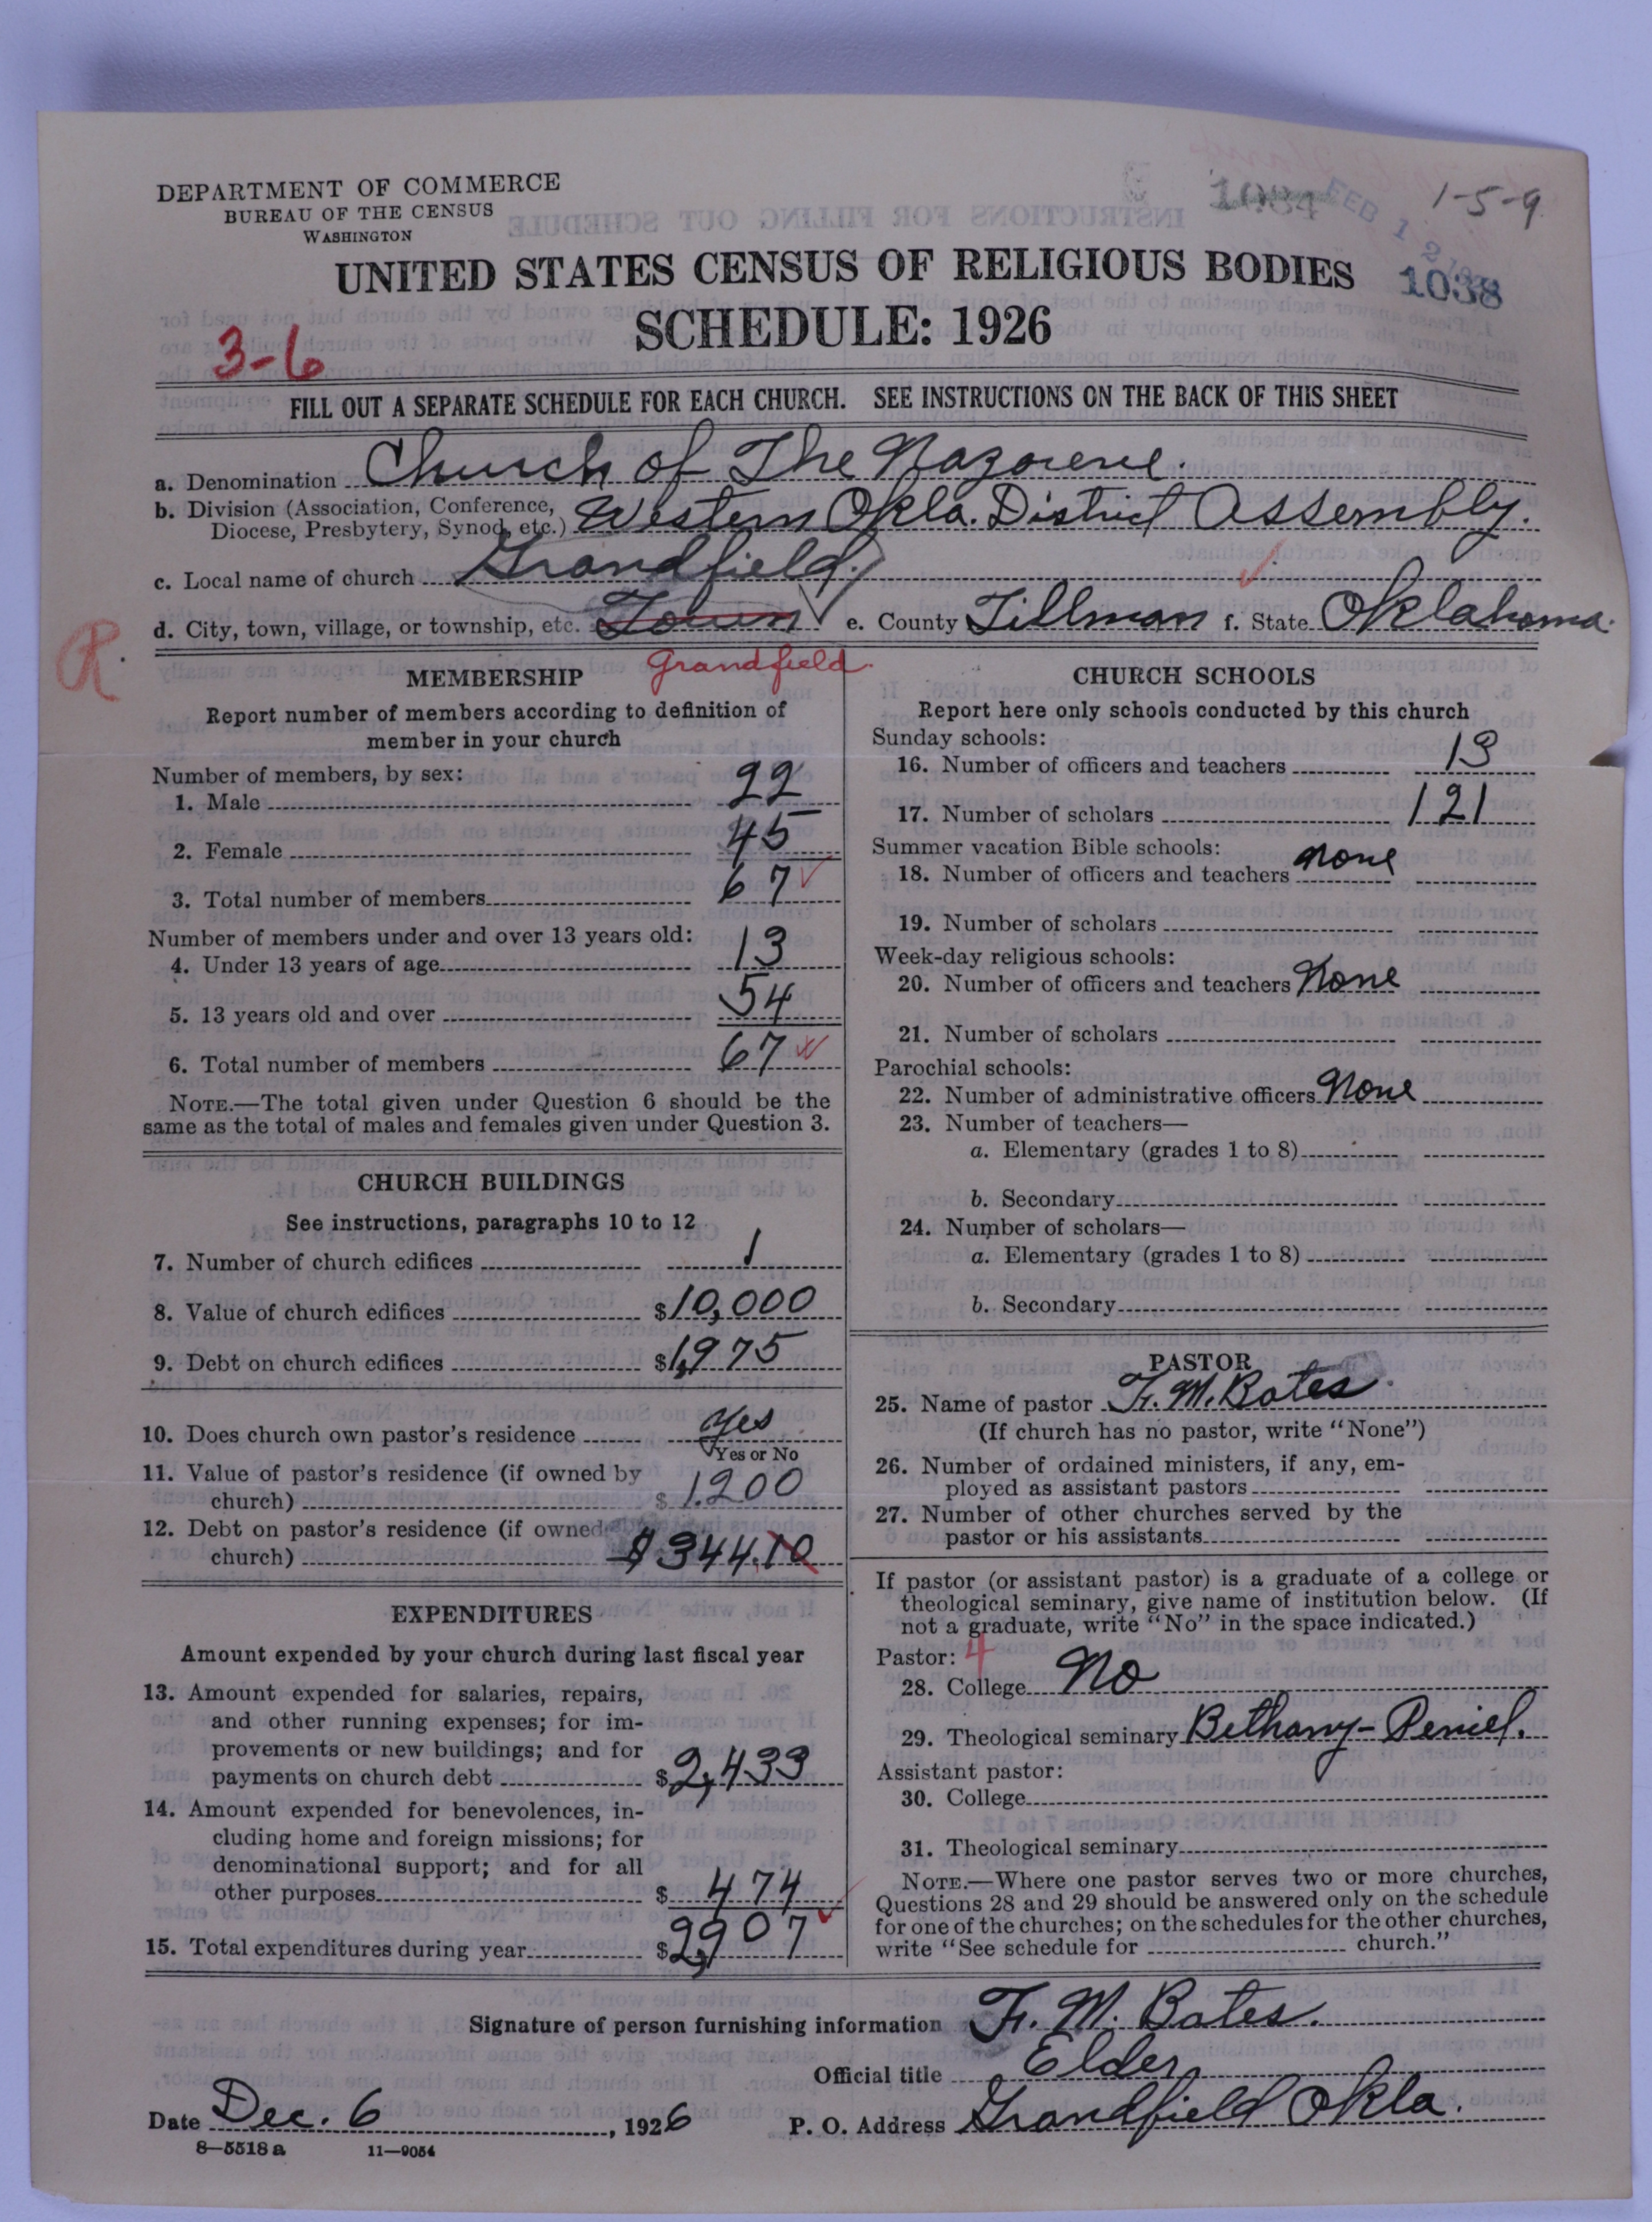 DEPARTMENT OF COMMERCE
BUREAU OF THE CENSUS
WASHINGTON
1034
FEB 12
1-5-9
1038
UNITED STATES CENSUS OF RELIGIOUS BODIES
SCHEDULE: 1926
3-6
FILL OUT A SEPARATE SCHEDULE FOR EACH CHURCH. SEE INSTRUCTIONS ON THE BACK OF THIS SHEET
a. Denomination Church of The Nazarene.
b. Division (Association, Conference,
Diocese, Presbytery, Synod, etc.) Western Okla. District Assembly.
c. Local name of church Grandfield.
d. City, town, village, or township, etc. Town e. County Tillman f. State Oklahoma.
R.
Grandfield.
MEMBERSHIP
Report number of members according to definition of
member in your church
Number of members, by sex:
1. Male 22
2. Female 45
3. Total number of members 67
Number of members under and over 13 years old:
4. Under 13 years of age 13
5. 13 years old and over 54
6. Total number of members 67
NOTE.—The total given under Question 6 should be the
same as the total of males and females given under Question 3.
CHURCH BUILDINGS
See instructions, paragraphs 10 to 12
7. Number of church edifices 1
8. Value of church edifices $10,000
9. Debt on church edifices $1,975
10. Does church own pastor's residence Yes
Yes or No
11. Value of pastor's residence (if owned by
church) $1,200
12. Debt on pastor's residence (if owned
church) $344.10
EXPENDITURES
Amount expended by your church during last fiscal year
13. Amount expended for salaries, repairs,
and other running expenses; for im-
provements or new buildings; and for
payments on church debt $2,433
14. Amount expended for benevolences, in-
cluding home and foreign missions; for
denominational support; and for all
other purposes $474
15. Total expenditures during year $2,907
CHURCH SCHOOLS
Report here only schools conducted by this church
Sunday schools:
16. Number of officers and teachers 13
17. Number of scholars 121
Summer vacation Bible schools:
18. Number of officers and teachers none
19. Number of scholars
Week-day religious schools:
20. Number of officers and teachers None
21. Number of scholars
Parochial schools:
22. Number of administrative officers None
23. Number of teachers—
a. Elementary (grades 1 to 8)
b. Secondary
24. Number of scholars—
a. Elementary (grades 1 to 8)
b. Secondary
PASTOR
25. Name of pastor F. M. Bates.
(If church has no pastor, write "None")
26. Number of ordained ministers, if any, em-
ployed as assistant pastors
27. Number of other churches served by the
pastor or his assistants
If pastor (or assistant pastor) is a graduate of a college or
theological seminary, give name of institution below. (If
not a graduate, write "No" in the space indicated.)
Pastor: 4
28. College No
29. Theological seminary Bethany-Peniel.
Assistant pastor:
30. College
31. Theological seminary
NOTE.—Where one pastor serves two or more churches,
Questions 28 and 29 should be answered only on the schedule
for one of the churches; on the schedules for the other churches,
write "See schedule for church."
Signature of person furnishing information F. M. Bates.
Official title Elder
Date Dec. 6, 1926 P. O. Address Grandfield Okla.
8—5518 a 11—9054